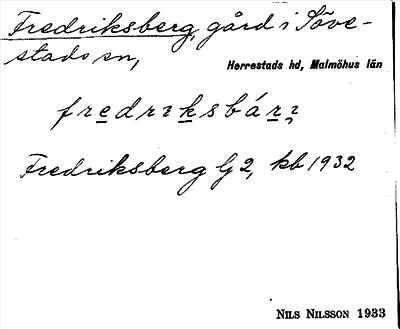 Fredriksberg, gård i Söve-
stads sn,
Herrestads hd, Malmöhus län
fredrıksbárı
Fredriksberg G 2, kb 1932
NILS NILSSON 1933